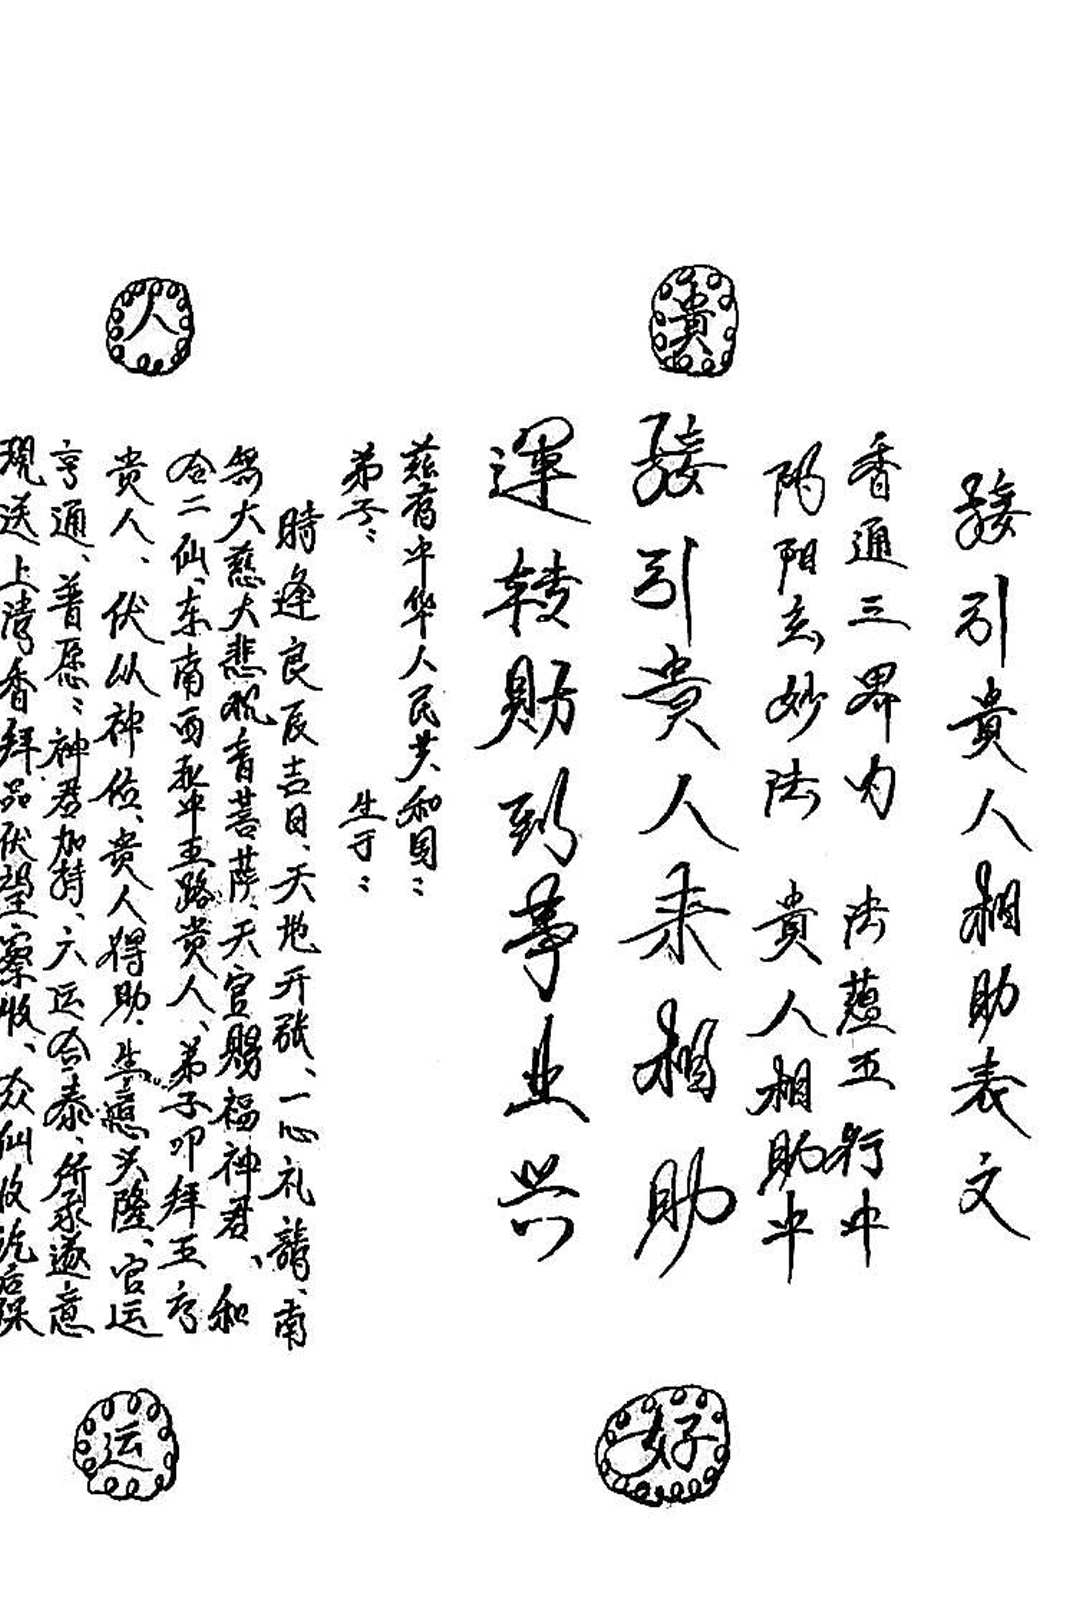 接引貴人相助表文
香通三界内 法蕴五行中
阴阳玄妙法 貴人相助中
貴
好
接引貴人来相助
運转财到事业兴
兹有中华人民共和国：
弟子： 生于：
時逢良辰吉日、天地开张、一心礼請、南
無大慈大悲观音菩萨、天官赐福神君、和
合二仙、东南西北中五路贵人、弟子叩拜五方
贵人、伏以神位、贵人得助、生意兴隆、官运
亨通、普愿：神君加持、六运合泰、所求遂意
現送上清香拜品伏望察收、众仙收讫后保
人
运